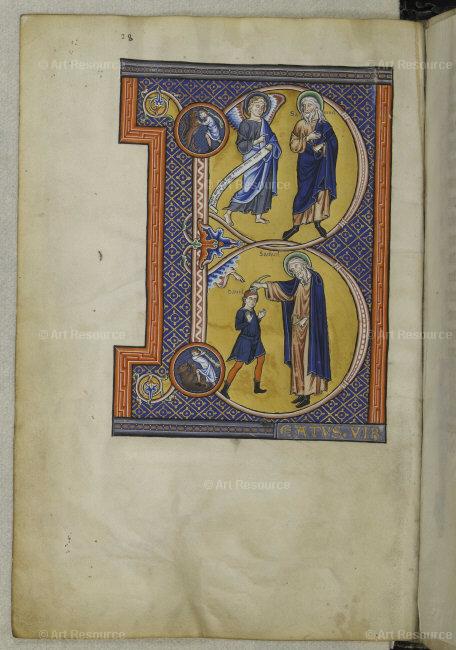 28
© Art Resource
© Art Resource
© Art Resource
B
Samuel
David
© Art Resource
© Art Resource
© Art Resource
EATVS·VIR
© Art Resource
© Art Resource
© Art Resource